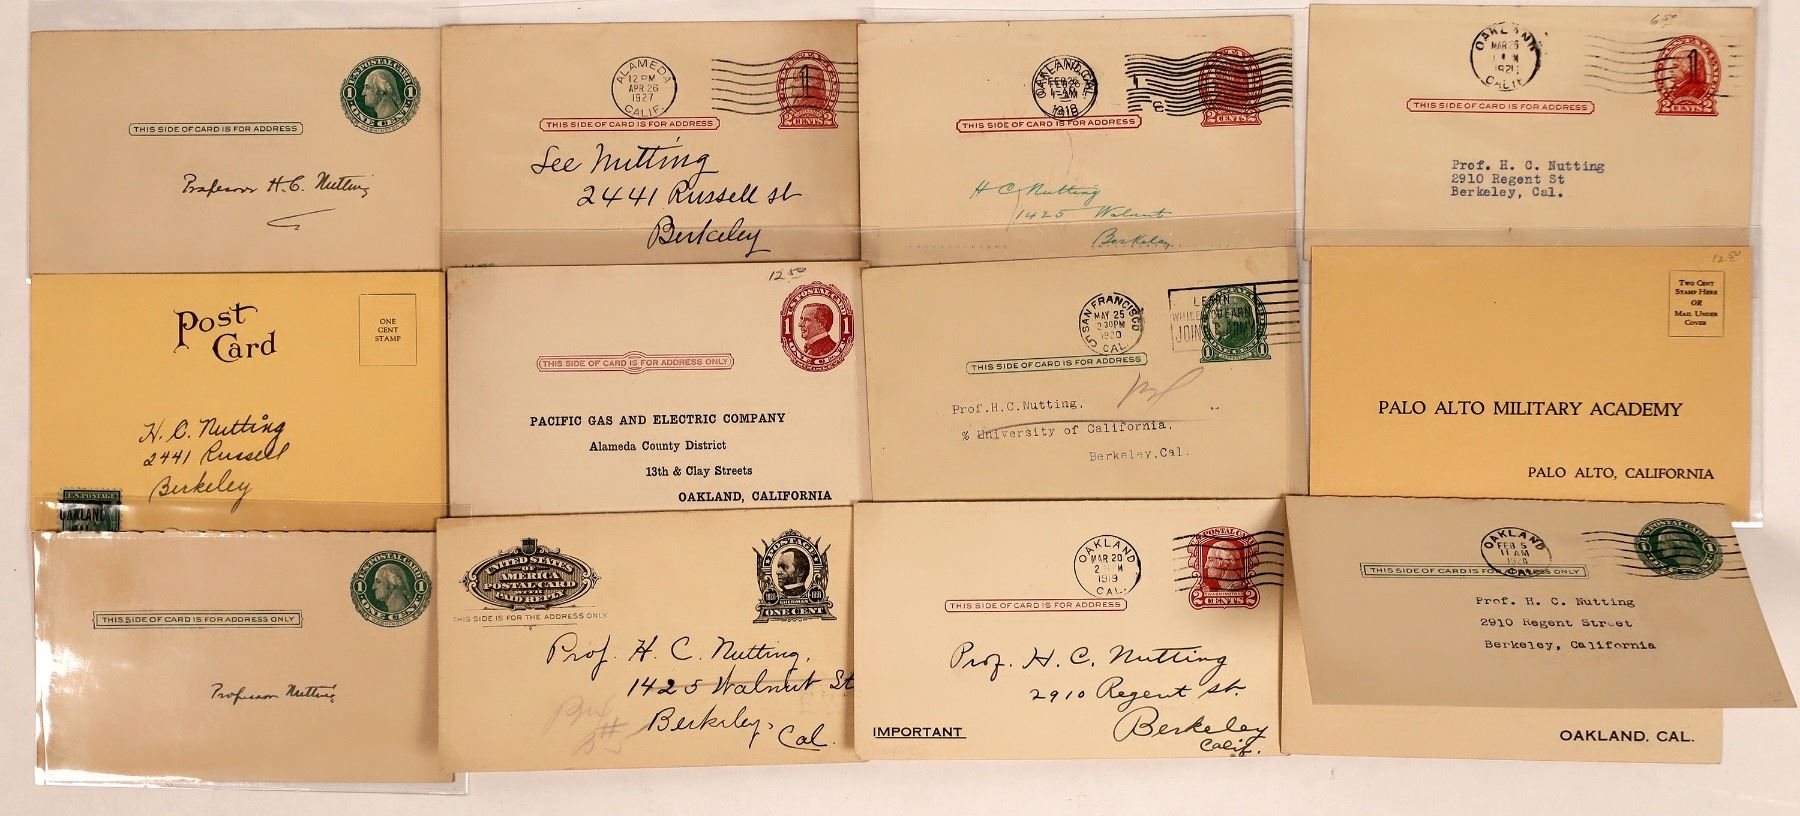 U.S. POSTAL CARD
1 1
ONE CENT
WASHINGTON
THIS SIDE OF CARD IS FOR ADDRESS
Professor H. C. Nutting
ALAMEDA
12 PM
APR 26
1927
CALIF.
1
2 CENTS 2
THIS SIDE OF CARD IS FOR ADDRESS
Lee Nutting
2441 Russell St
Berkeley
OAKLAND, CAL.
FEB 26
4-AM
1918
2 CENTS 2
THIS SIDE OF CARD IS FOR ADDRESS
H C Nutting
1425 Walnut
Berkeley
6 50
OAKLAND
MAR 26
CALIF.
1
2 CENTS 2
THIS SIDE OF CARD IS FOR ADDRESS
Prof. H. C. Nutting
2910 Regent St
Berkeley, Cal.
Post
Card
ONE
CENT
STAMP
H. C. Nutting
2441 Russell
Berkeley
U.S. POSTAGE
OAKLAND
CAL.
12 50
U.S. POSTAL CARD
1 1
ONE CENT
THIS SIDE OF CARD IS FOR ADDRESS ONLY
PACIFIC GAS AND ELECTRIC COMPANY
Alameda County District
13th & Clay Streets
OAKLAND, CALIFORNIA
SAN FRANCISCO
MAY 25
2 30PM
1920
CAL.
LEARN
WHILE YOU EARN
JOIN THE ARMY
1 1
THIS SIDE OF CARD IS FOR ADDRESS
Prof.H.C.Nutting,
% University of California,
Berkeley,Cal.
12 50
TWO CENT
STAMP HERE
OR
MAIL UNDER
COVER
PALO ALTO MILITARY ACADEMY
PALO ALTO, CALIFORNIA
U.S. POSTAL CARD
1 1
ONE CENT
WASHINGTON
THIS SIDE OF CARD IS FOR ADDRESS ONLY
Professor Nutting
UNITED STATES
OF
AMERICA
POSTAL CARD
WITH
PAID REPLY
THIS SIDE IS FOR THE ADDRESS ONLY
POSTAGE
1820 1891
SHERMAN
ONE CENT
Prof. H. C. Nutting,
1425 Walnut St
Berkeley,
Cal.
OAKLAND
MAR 20
1919
CAL.
U.S. POSTAL CARD
2 CENTS 2
THIS SIDE OF CARD IS FOR ADDRESS
Prof. H. C. Nutting
2910 Regent St.
Berkeley
Calif.
IMPORTANT
OAKLAND
FEB 5
11 AM
CAL.
1 1
THIS SIDE OF CARD IS FOR ADDRESS ONLY
Prof. H. C. Nutting
2910 Regent Street
Berkeley, California
OAKLAND, CAL.